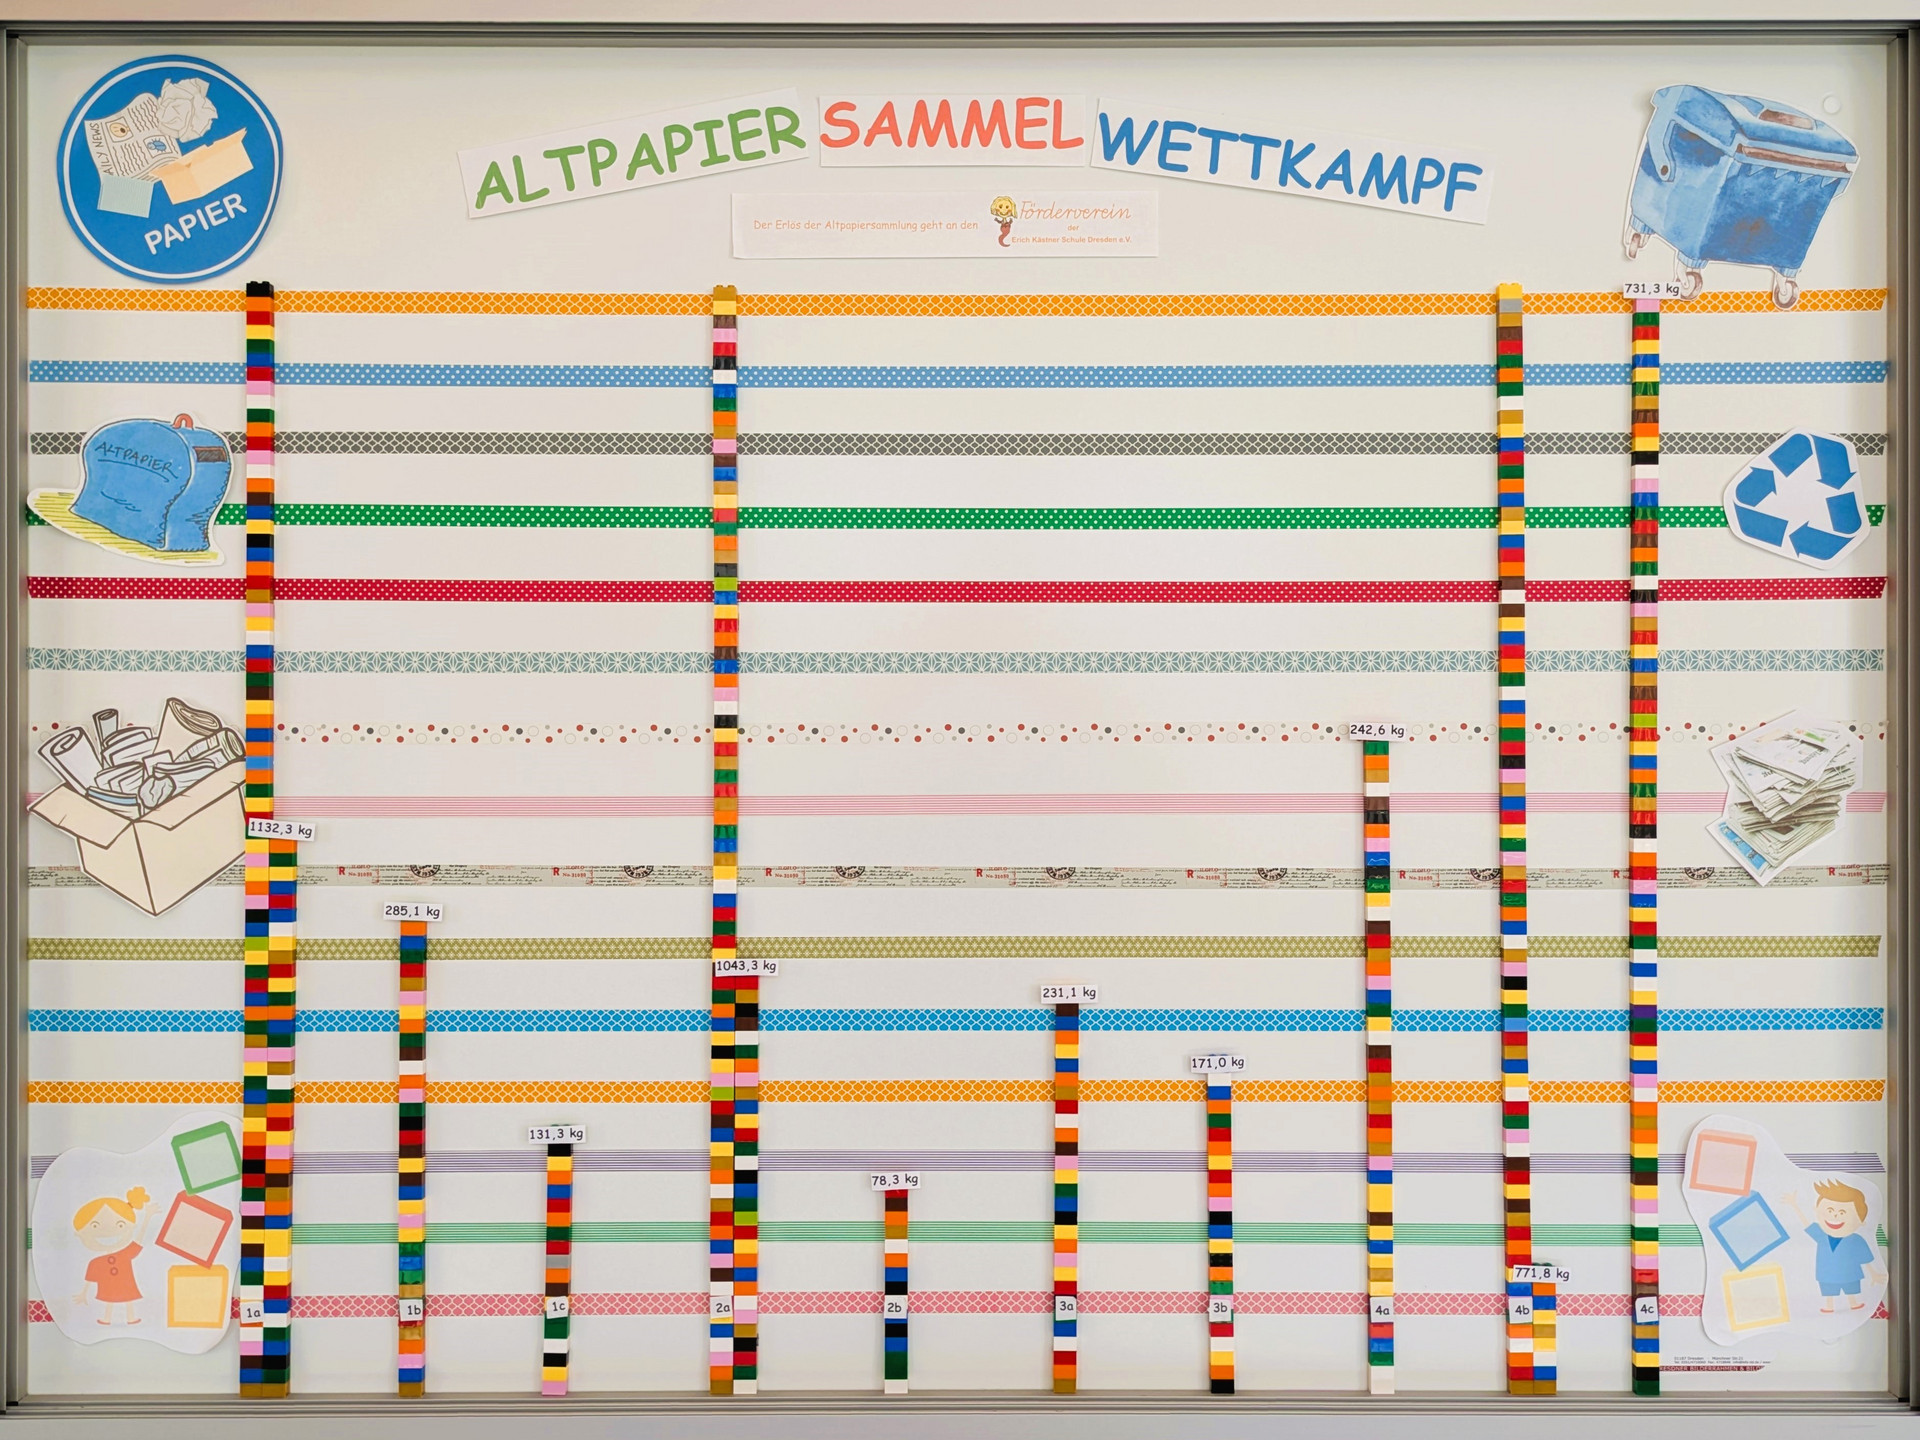 DAILY NEWS
PAPIER
ALTPAPIER SAMMEL WETTKAMPF
Der Erlös der Altpapiersammlung geht an den
Förderverein
der
Erich Kästner Schule Dresden e.V.
731,3 kg
ALTPAPIER
242,6 kg
1132,3 kg
285,1 kg
1043,3 kg
231,1 kg
171,0 kg
131,3 kg
78,3 kg
771,8 kg
1a
1b
1c
2a
2b
3a
3b
4a
4b
4c